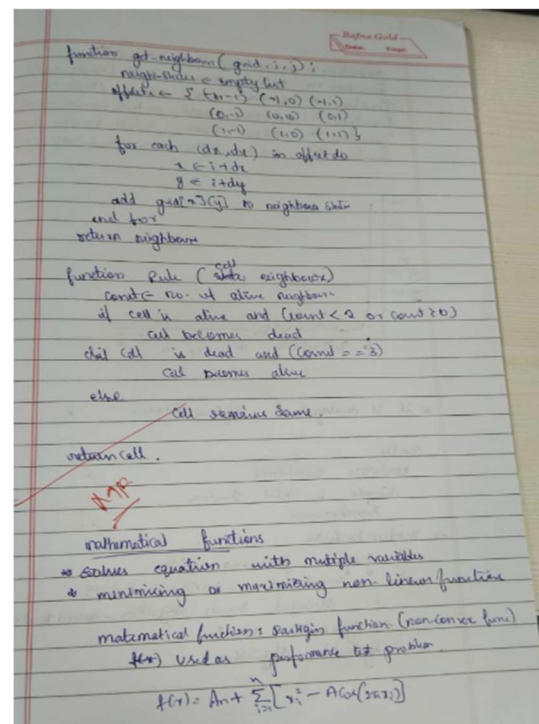 Bafna Gold
Date: Page:
function get-neighbours (grid, i, j):
neighbr-states ← empty list
offsets ← { (-1,-1) (-1,0) (-1,1)
(0,-1) (0,0) (0,1)
(1,-1) (1,0) (1,1) }
for each (dx, dx) in offset do
x ← i+dx
y ← i+dy
add grid[x][y] to neighbour state
end for
return neighbours
function Rule ( cell neighbours)
count ← no. of alive neighbours
if cell is alive and (count < 2 or count > 0)
cell becomes dead
cell is dead and (count == 3)
cell becomes alive
else
cell remains same.
return cell.
mathematical functions
* solves equation with multiple variables
* minimising or maximising non-linear function
matematical function: function (non-convex func)
f(x) used as performance test problem.
f(x) = An + ∑ i=1 n [xi² - A cos(2πxi)]